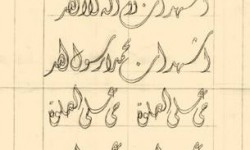 اشهد ان لا اله الا الله
اشهد ان محمدا رسول الله
حي على الصلوة حي على الصلوة